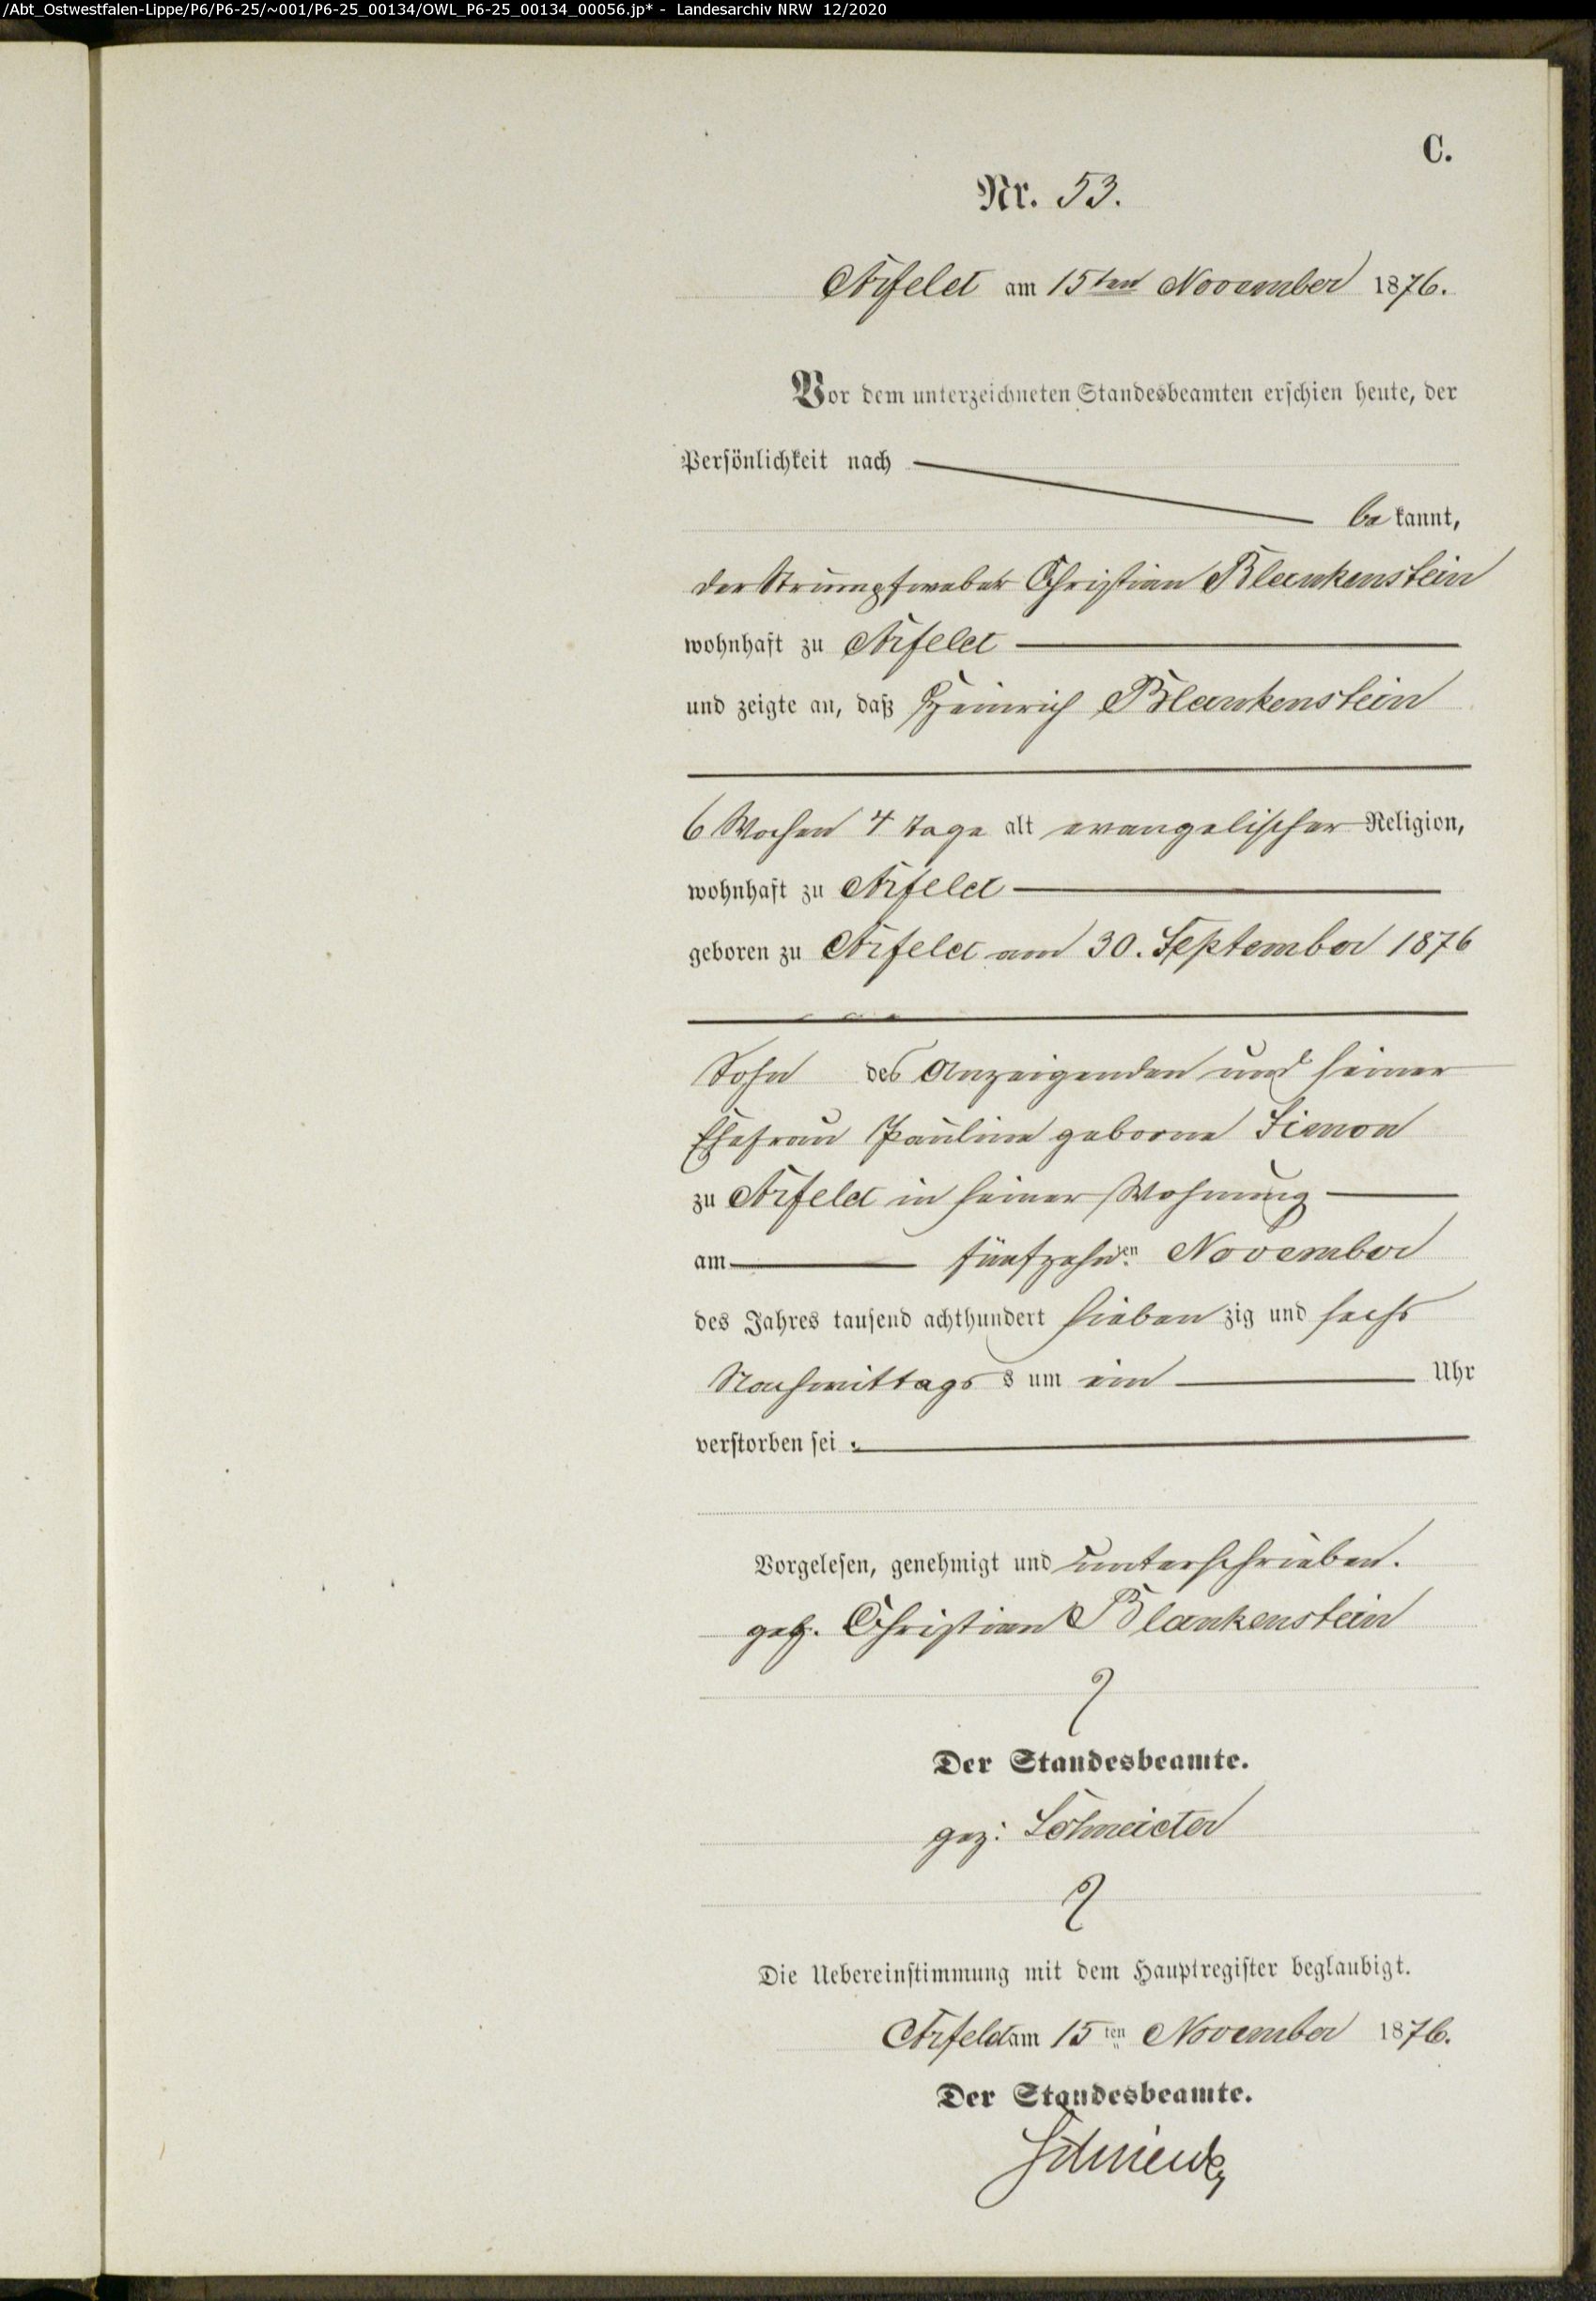 /Abt_Ostwestfalen-Lippe/P6/P6-25/~001/P6-25_00134/OWL_P6-25_00134_00056.jp* - Landesarchiv NRW 12/2020
C.
Nr. 53.
Arfeld am 15ten November 1876.
Vor dem unterzeichneten Standesbeamten erschien heute, der
Persönlichkeit nach
bekannt,
der Strumpfweber Christian Blankenstein
wohnhaft zu Arfeld
und zeigte an, daß Heinrich Blankenstein
6 Wochen 4 Tage alt evangelischer Religion,
wohnhaft zu Arfeld
geboren zu Arfeld am 30. September 1876
Sohn des Anzeigenden und seiner
Ehefrau Pauline geborne Simon
zu Arfeld in seiner Wohnung
am fünfzehnen November
des Jahres tausend achthundert siebenzig und sechs
Nachmittags s um ein Uhr
verstorben sei.
Vorgelesen, genehmigt und unterschrieben.
gez. Christian Blankenstein
Der Standesbeamte.
gez:
Die Uebereinstimmung mit dem Hauptregister beglaubigt.
Arfeld am 15ten November 1876.
Der Standesbeamte.